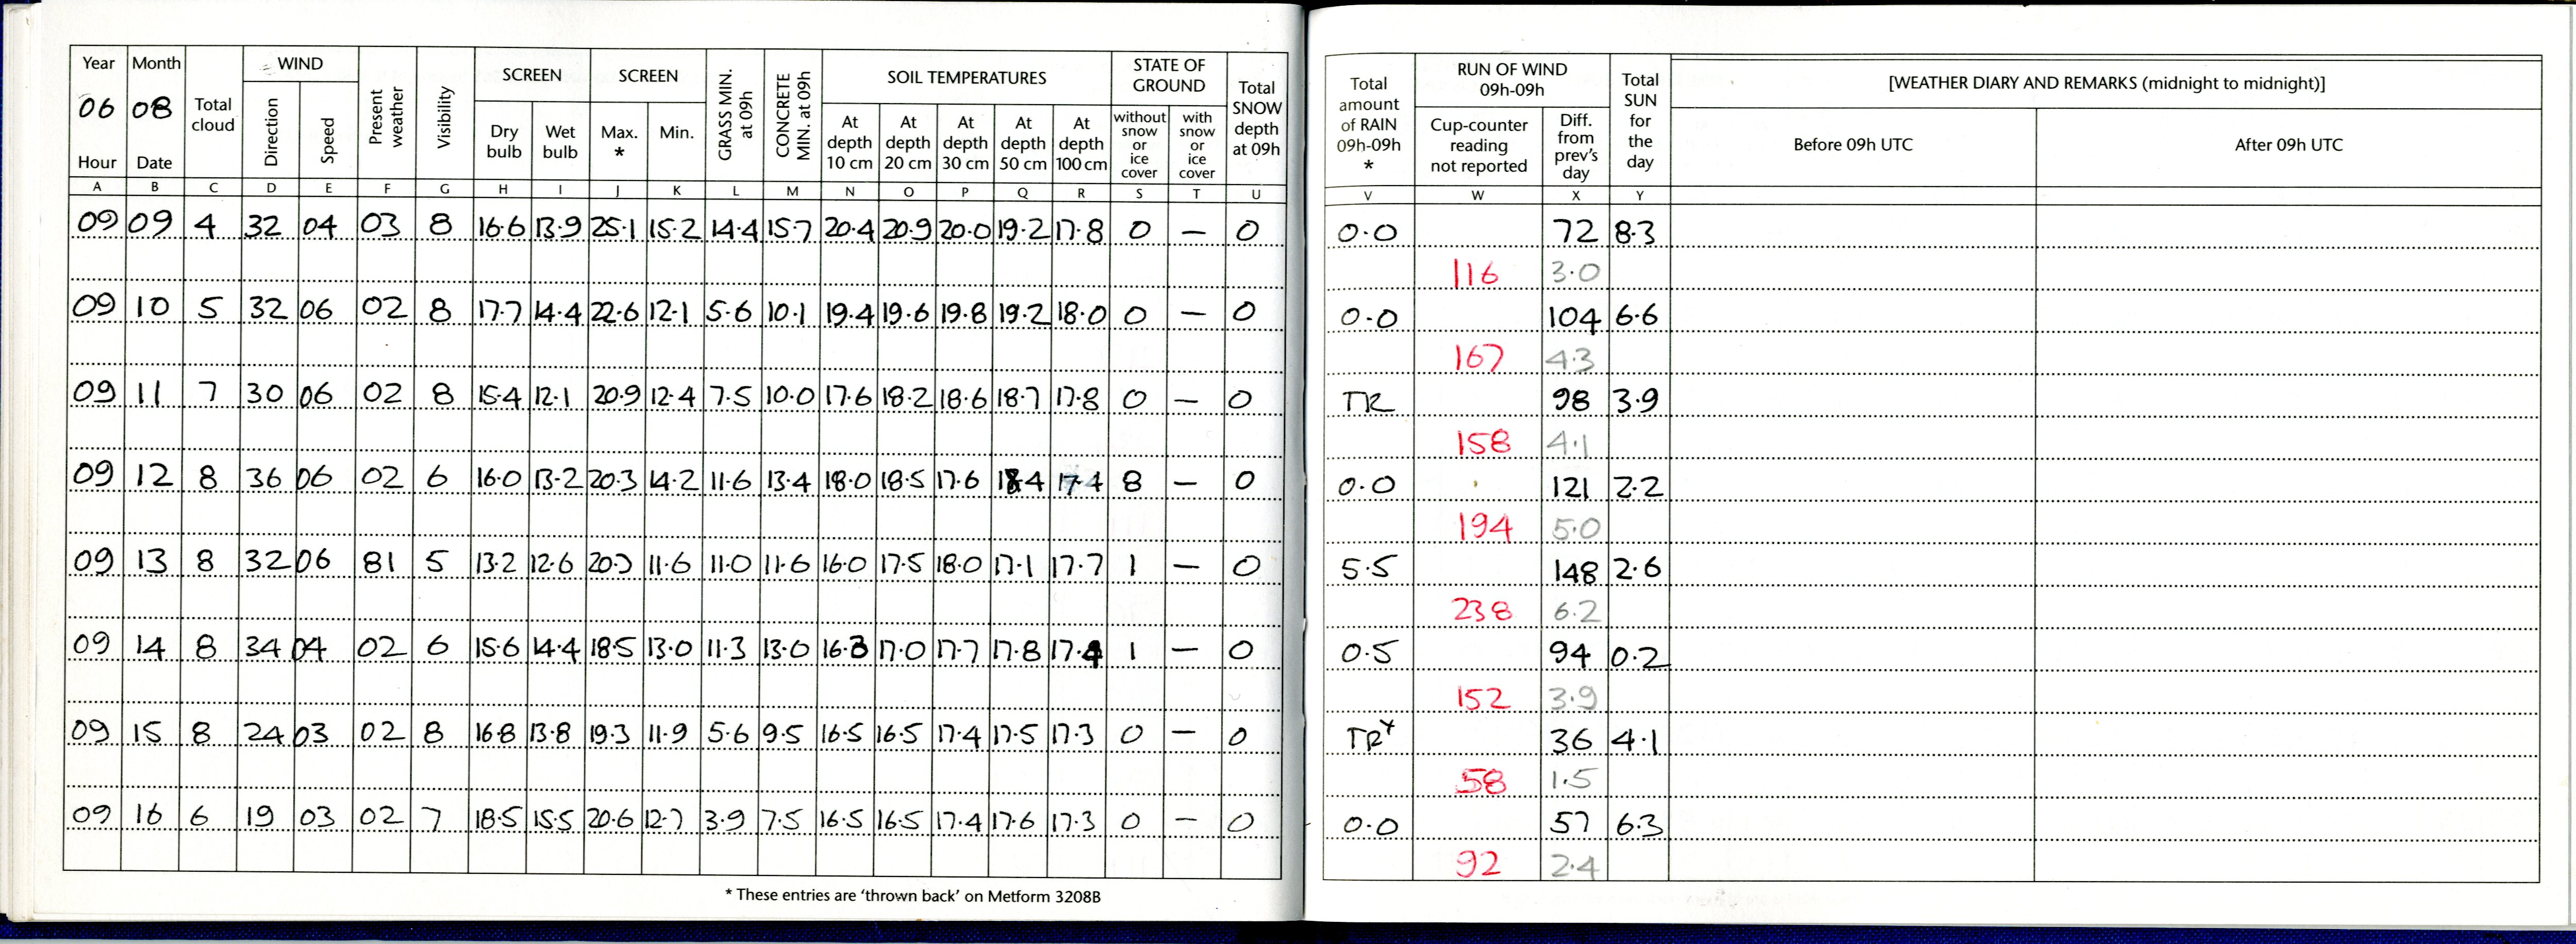 Year Month WIND SCREEN SCREEN GRASS MIN. at 09h CONCRETE MIN. at 09h SOIL TEMPERATURES STATE OF GROUND Total SNOW depth at 09h
06 08 Total cloud Direction Speed Present weather Visibility Dry bulb Wet bulb Max. * Min. At depth 10 cm At depth 20 cm At depth 30 cm At depth 50 cm At depth 100 cm without snow or ice cover with snow or ice cover
Hour Date
A B C D E F G H I J K L M N O P Q R S T U
09 09 4 32 04 03 8 16.6 13.9 25.1 15.2 14.4 15.7 20.4 20.9 20.0 19.2 17.8 0 — 0
09 10 5 32 06 02 8 17.7 14.4 22.6 12.1 5.6 10.1 19.4 19.6 19.8 19.2 18.0 0 — 0
09 11 7 30 06 02 8 15.4 12.1 20.9 12.4 7.5 10.0 17.6 18.2 18.6 18.7 17.8 0 — 0
09 12 8 36 06 02 6 16.0 13.2 20.3 14.2 11.6 13.4 18.0 18.5 17.6 18.4 17.4 8 — 0
09 13 8 32 06 81 5 13.2 12.6 11.6 11.0 11.6 16.0 17.5 18.0 17.1 17.7 1 — 0
09 14 8 34 04 02 6 15.6 14.4 18.5 13.0 11.3 13.0 17.0 17.7 17.8 17.4 1 — 0
09 15 8 24 03 02 8 16.8 13.8 19.3 11.9 5.6 9.5 16.5 16.5 17.4 17.5 17.3 0 — 0
09 16 6 19 03 02 7 18.5 15.5 20.6 12.7 3.9 7.5 16.5 16.5 17.4 17.6 17.3 0 — 0
* These entries are ‘thrown back’ on Metform 3208B
Total amount of RAIN 09h-09h * RUN OF WIND 09h-09h Total SUN for the day [WEATHER DIARY AND REMARKS (midnight to midnight)]
Cup-counter reading not reported Diff. from prev's day Before 09h UTC After 09h UTC
V W X Y
0.0 72 8.3
116 3.0
0.0 104 6.6
167 4.3
TR 98 3.9
158 4.1
0.0 121 2.2
194 5.0
5.5 148 2.6
238 6.2
0.5 94 0.2
152 3.9
TR 36 4.1
58 1.5
0.0 57 6.3
92 2.4